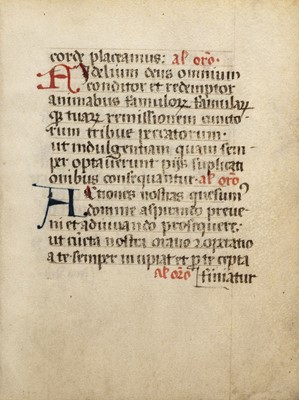 corde placeamus: al' oro.
Fidelium deus omnium
conditor et redemptor
animabus famulorz famularz
qz tuarz remissionem cuncto
rum tribue peccatorum.
ut indulgentiam quam sem
per optaverunt pijs suplicati
onibus consequantur. al' oro
Actiones nostras quesum9
domine aspirando preve
ni et adiuvando prosequere.
ut cūcta nostra oratio 2 operatio
a te semper incipiat et p te cepta
al' oro finiatur